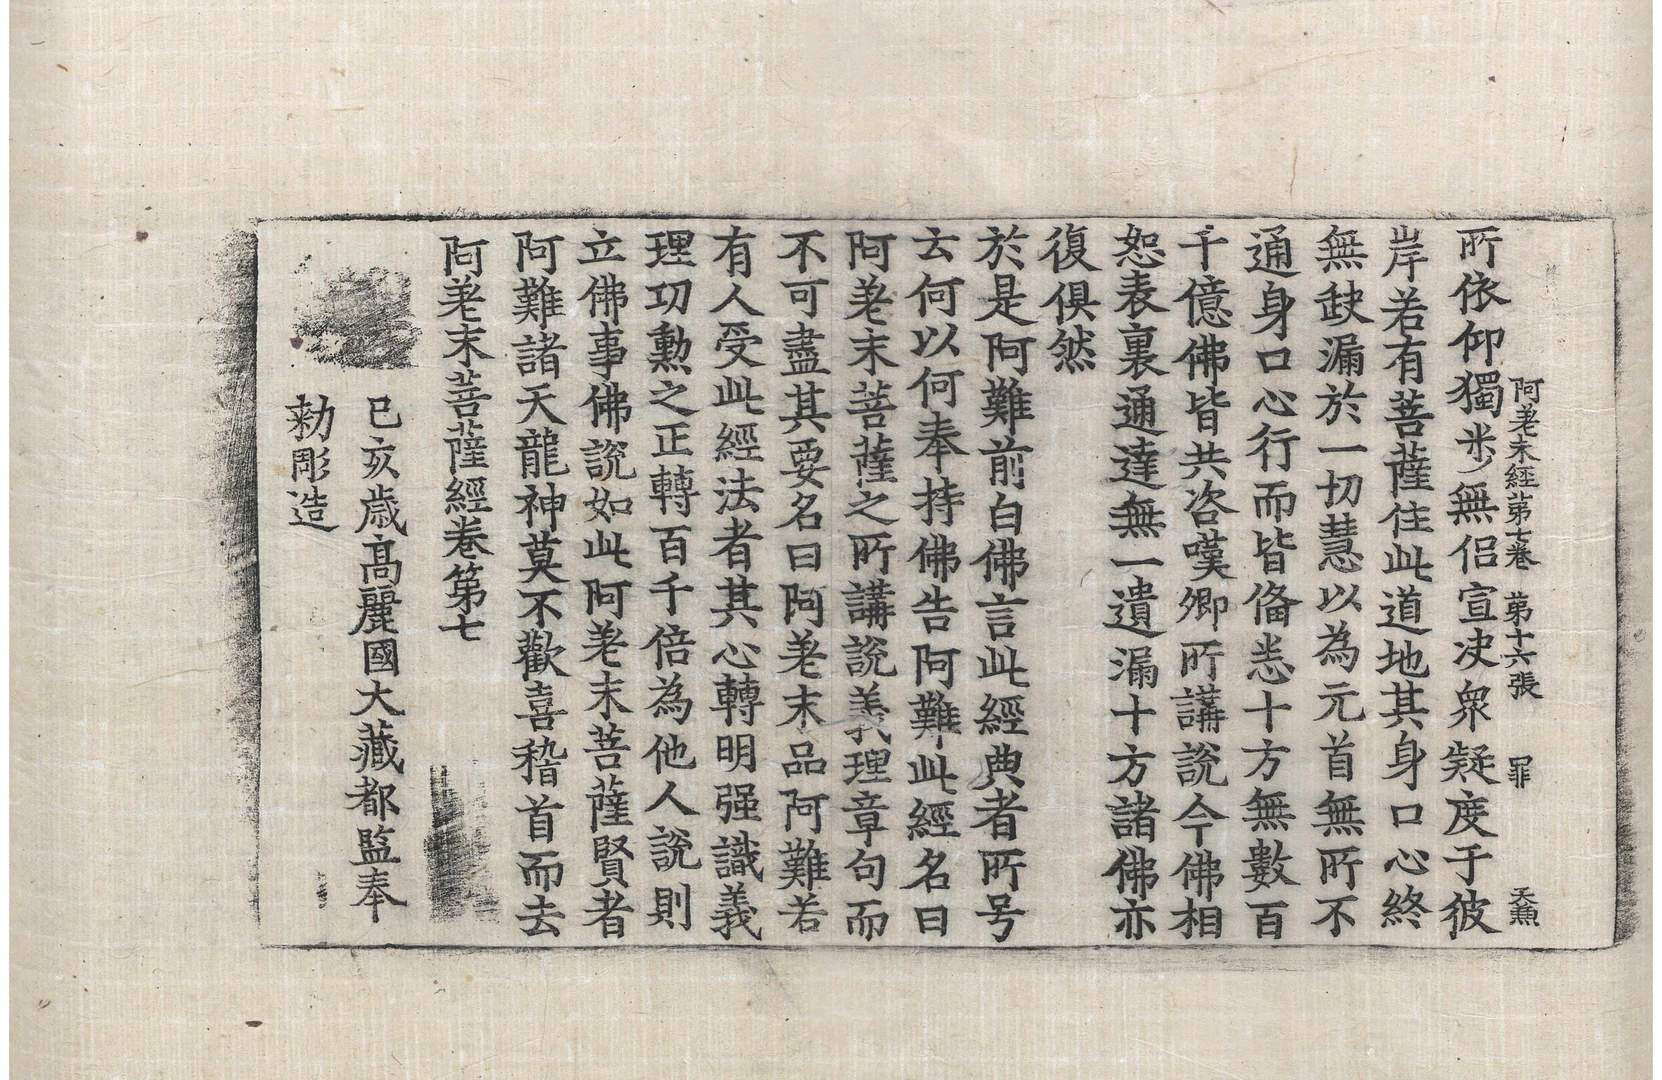 阿差末經第七卷 第十六張 罪 天煎
所依仰獨步無侣宣决衆疑度于彼
岸若有菩薩住此道地其身口心終
無𡙇漏於一切慧以為元首無所不
通身口心行而皆俻悉十方無數百
千億佛皆共咨嘆卿所講說今佛相
恕表裏通達無一遺漏十方諸佛亦
復俱然
於是阿難前白佛言此經典者所号
云何以何奉持佛告阿難此經名曰
阿差末菩薩之所講說義理章句而
不可盡其要名曰阿差末品阿難若
有人受此經法者其心轉明强識義
理功勲之正轉百千倍為他人說則
立佛事佛說如此阿差末菩薩賢者
阿難諸天龍神莫不歡喜稽首而去
阿差末菩薩經卷第七
己亥歲高麗國大藏都監奉
勑彫造